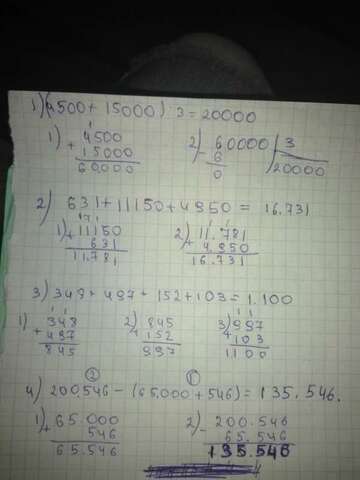 1) (4500 + 15000) : 3 = 20000
1) + 4500
15000
60,000
2) - 60000 | 3
6
0
20000
2) 631 + 11150 + 4950 = 16.731
1) + 11150
631
11.781
2) + 11.781
4.950
16.731
3) 348 + 497 + 152 + 103 = 1.100
1) + 348
497
845
2) + 845
152
997
3) + 997
103
1100
② ①
4) 200.546 - (65.000 + 546) = 135.546.
1) + 65.000
546
65.546
2) - 200.546
65.546
135.546